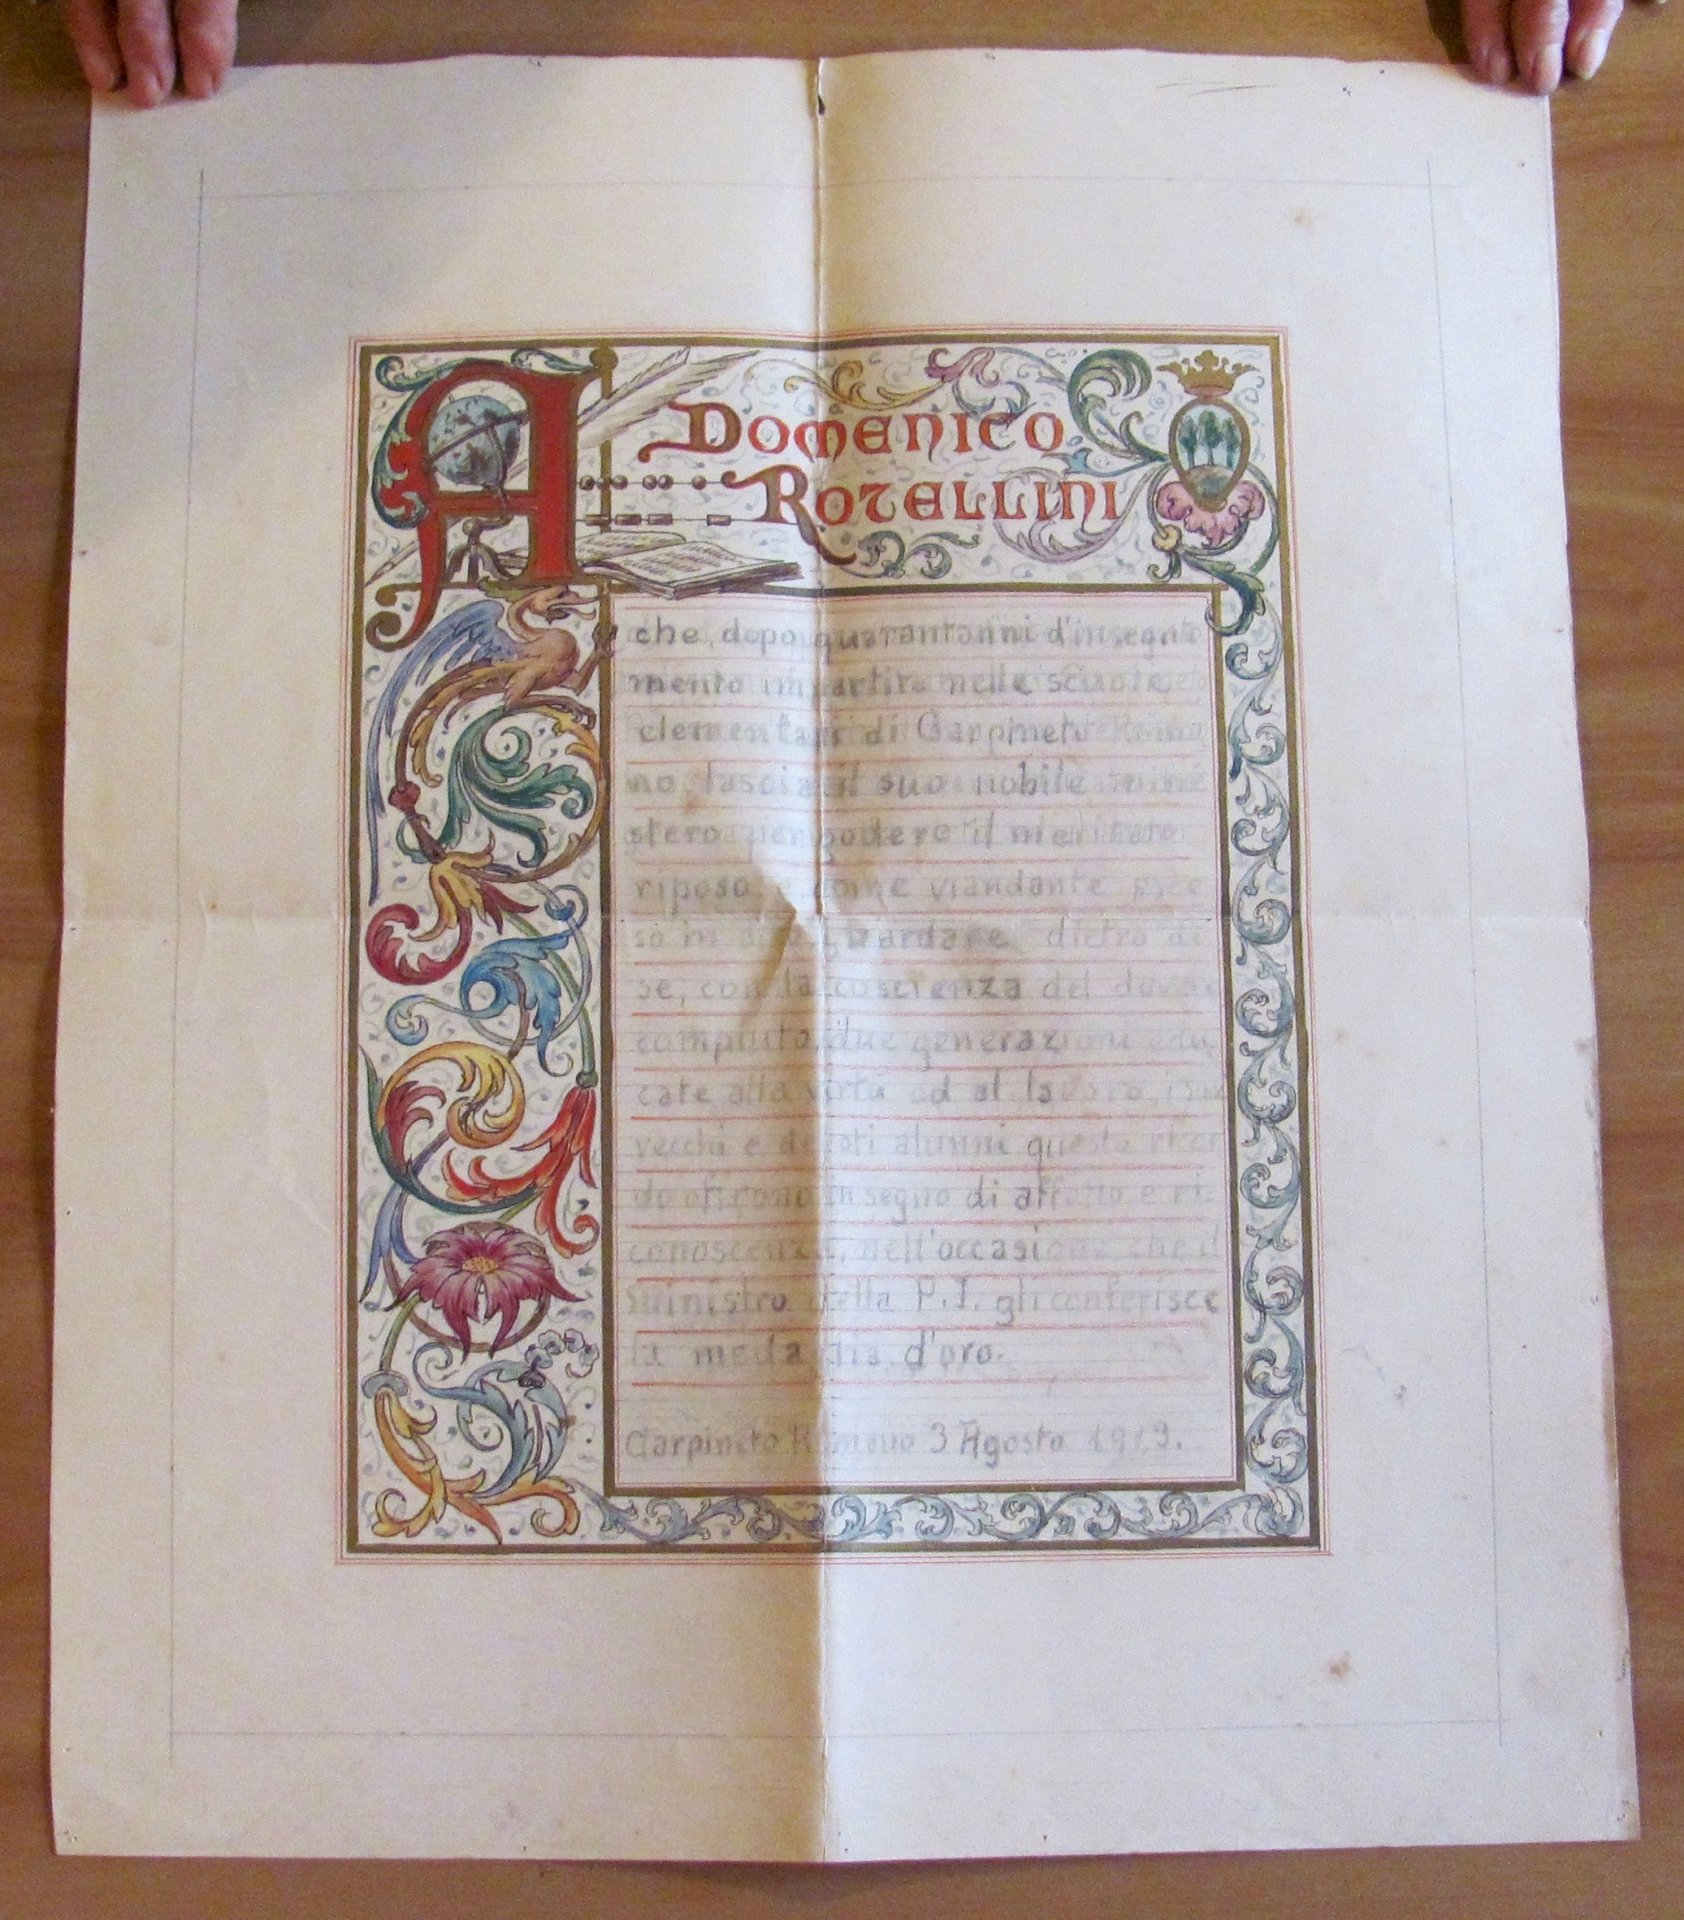 A DOMENICO
ROTELLINI
che, dopo quarantanni d'insegna
mento impartito nelle scuole
elementari di Carpineto Roma
no, lascia il suo nobile mini
stero per godere il meritato
riposo e come viandante
so in alto guardare dietro di
se, con la coscienza del dovere
compiuto, due generazioni edu
cate alla virtù ed al lavoro, i suoi
vecchi e devoti alunni questo ricor
do offrono in segno di affetto e ri
conoscenza, nell'occasione che il
Ministro della P. I. gli conferisce
la medaglia d'oro.
Carpineto Romano 3 Agosto 1913.